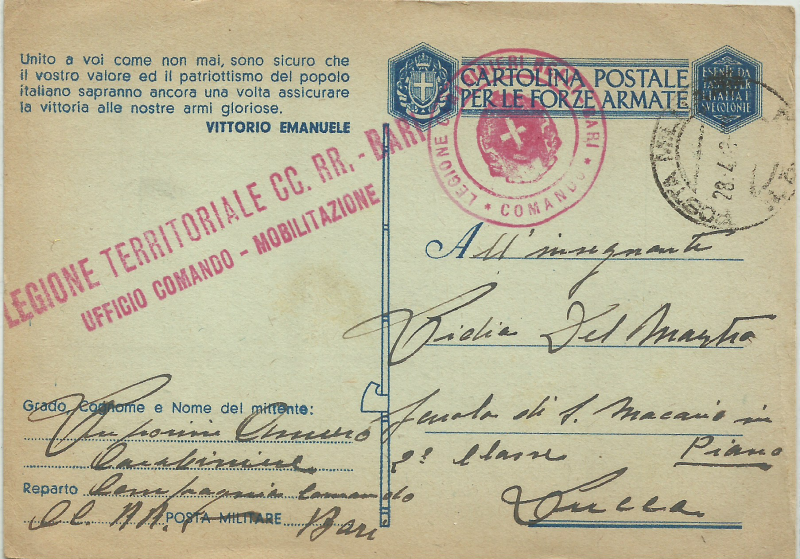 Unito a voi come non mai, sono sicuro che
il vostro valore ed il patriottismo del popolo
italiano sapranno ancora una volta assicurare
la vittoria alle nostre armi gloriose.
VITTORIO EMANUELE
CARTOLINA POSTALE
PER LE FORZE ARMATE
ESENTE DA
TASSE PER
ITALIA
SUE COLONIE
LEGIONE CARABINIERI REALI BARI
* COMANDO *
POSTA MIL
28.4
LEGIONE TERRITORIALE CC. RR. - BARI
UFFICIO COMANDO - MOBILITAZIONE
All'insegnante
Lidia Del Magro
Scuola di S. Macario in
Piano
2ª Classe
Lucca
Grado, Cognome e Nome del mittente:
Carabiniere
Reparto Compagnia Comando
CC. RR. POSTA MILITARE Bari